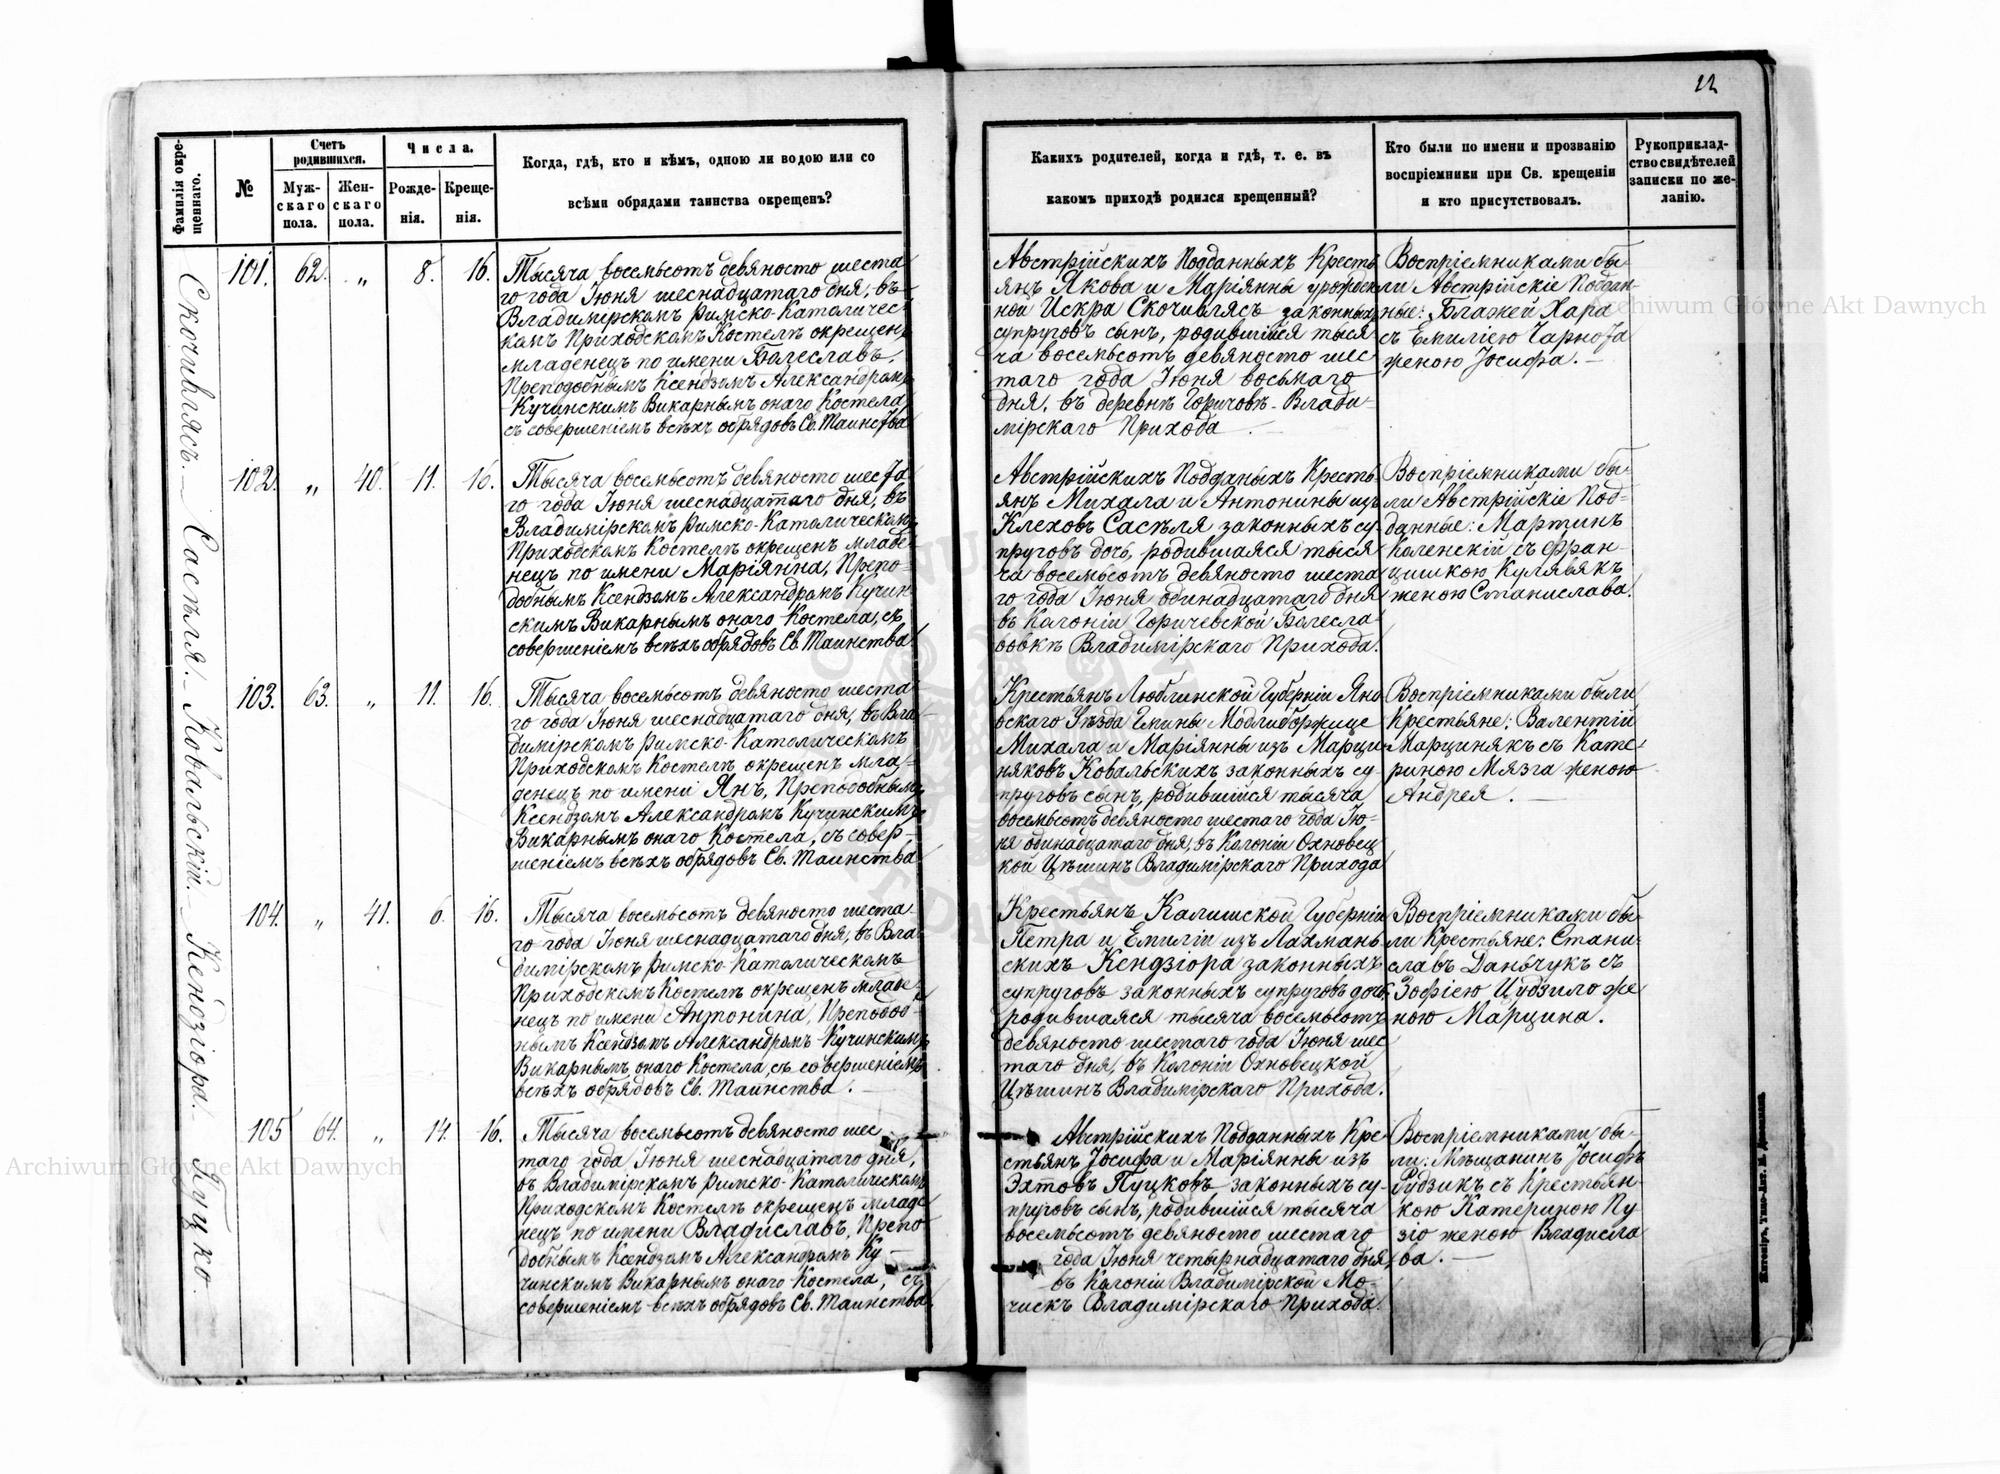 22
Фамилія окре-
щеннаго.
№
Счетъ
родившихся.
Муж-
скаго
пола.
Жен-
скаго
пола.
Числа.
Рожде-
нія.
Креще-
нія.
Когда, гдѣ, кто и кѣмъ, одною ли водою или со
всѣми обрядами таинства окрещенъ?
Какихъ родителей, когда и гдѣ, т. е. въ
какомъ приходѣ родился крещенный?
Кто были по имени и прозванію
воспріемники при Св. крещеніи
и кто присутствовалъ.
Рукоприклад-
ство свидѣтелей
записки по же-
ланію.
Скочилясъ.
101. 62. „ 8. 16.
Тысяча восемьсотъ девяносто шеста
го года Іюня шеснадцатаго дня, въ
Владимірскомъ Римско-Католичес-
комъ Приходскомъ Костелѣ окрещенъ
младенецъ по имени Болеславъ,
Преподобнымъ Ксендзомъ Александромъ
Кучинскимъ Викарнымъ онаго Костела
съ совершеніемъ всѣхъ обрядовъ Св. Таинства
Австрійскихъ Подданныхъ Кресть
янъ Якова и Маріянны урожден
ной Искра Скочилясъ законныхъ
супруговъ сынъ, родившійся тыся
ча восемьсотъ девяносто шес
таго года Іюня восьмаго
дня, въ деревнѣ Горичовѣ Влади-
мірскаго Прихода.
Воспріемниками бы-
ли Австрійскіе Поддан-
ные: Блажей Хара
съ Емиліею Чарнота
женою Іосифа.
Састля.
102. „ 40. 11. 16.
Тысяча восемьсотъ девяносто шеста
го года Іюня шеснадцатаго дня, въ
Владимірскомъ Римско-Католическомъ
Приходскомъ Костелѣ окрещенъ младе
нецъ по имени Маріянна, Препо-
добнымъ Ксендзомъ Александромъ Кучин
скимъ Викарнымъ онаго Костела, съ
совершеніемъ всѣхъ обрядовъ Св. Таинства
Австрійскихъ Подданыхъ Кресть-
янъ Михала и Антонины изъ
Клеховъ Састля законныхъ су-
пруговъ дочь, родившаяся тыся
ча восемьсотъ девяносто шеста
го года Іюня одинадцатаго дня
въ Колоніи Горичевской Болесла
вовкѣ Владимірскаго Прихода.
Воспріемниками бы-
ли Австрійскіе Под-
данные: Мартинъ
Каленскій съ Фран-
цишкою Кулявякъ
женою Станислава.
Ковальскій.
103. 63. „ 11. 16.
Тысяча восемьсотъ девяносто шеста
го года Іюня шеснадцатаго дня, въ Вла-
димірскомъ Римско-Католическомъ
Приходскомъ Костелѣ окрещенъ мла-
денецъ по имени Янъ, Преподобнымъ
Ксендзомъ Александромъ Кучинскимъ
Викарнымъ онаго Костела, съ совер-
шеніемъ всѣхъ обрядовъ Св. Таинства
Крестьянъ Люблинской Губерніи Яно
вскаго Уѣзда Гмины Модлиборжице
Михала и Маріянны изъ Марци-
няковъ Ковальскихъ законныхъ су-
пруговъ сынъ, родившійся тысяча
восемьсотъ девяносто шестаго года Ію-
ня одинадцатаго дня, въ Колоніи Охновец
кой Цѣшинъ Владимірскаго Прихода
Воспріемниками были
Крестьяне: Валентій
Марцинякъ съ Кате-
риною Мязга женою
Андрея.
Кендзіора.
104. „ 41. 6. 16.
Тысяча восемьсотъ девяносто шеста-
го года Іюня шеснадцатаго дня, въ Вла-
димірскомъ Римско-Католическомъ
Приходскомъ Костелѣ окрещенъ младе-
нецъ по имени Антонина, Преподоб-
нымъ Ксендзомъ Александромъ Кучинскимъ
Викарнымъ онаго Костела, съ совершеніемъ
всѣхъ обрядовъ Св. Таинства.
Крестьянъ Калишской Губерніи
Петра и Емиліи изъ Лахмань-
скихъ Кендзіора законныхъ
супруговъ законныхъ супруговъ дочь,
родившаяся тысяча восемьсотъ
девяносто шестаго года Іюня шес
таго дня, въ Колоніи Охновецкой
Цѣшинъ Владимірскаго Прихода.
Воспріемниками бы-
ли Крестьяне: Стани-
славъ Даньчукъ съ
Зофіею Цудзило же
ною Марцина.
Пуцко.
105 64. „ 14. 16.
Тысяча восемьсотъ девяносто шес
таго года Іюня шеснадцатаго дня,
въ Владимірскомъ Римско-Католическомъ
Приходскомъ Костелѣ окрещенъ младе
нецъ по имени Владиславъ, Препо
добнымъ Ксендзомъ Александромъ Ку-
чинскимъ Викарнымъ онаго Костела, съ
совершеніемъ всѣхъ обрядовъ Св. Таинства
Австрійскихъ Подданныхъ Кре-
стьянъ Іосифа и Маріянны изъ
Эхтовъ Пуцковъ законныхъ су-
пруговъ сынъ, родившійся тысяча
восемьсотъ девяносто шестаго
года Іюня четырнадцатаго дня,
въ Колоніи Владимірской Мо-
чискъ Владимірскаго Прихода.
Воспріемниками бы-
ли: Мѣщанинъ Іосифъ
Рудзикъ съ Крестьян-
кою Катериною Пу
зіо женою Владисла
ва.
Житоміръ, Типо-Лит. М. Дененмана.
Archiwum Główne Akt Dawnych
Archiwum Główne Akt Dawnych